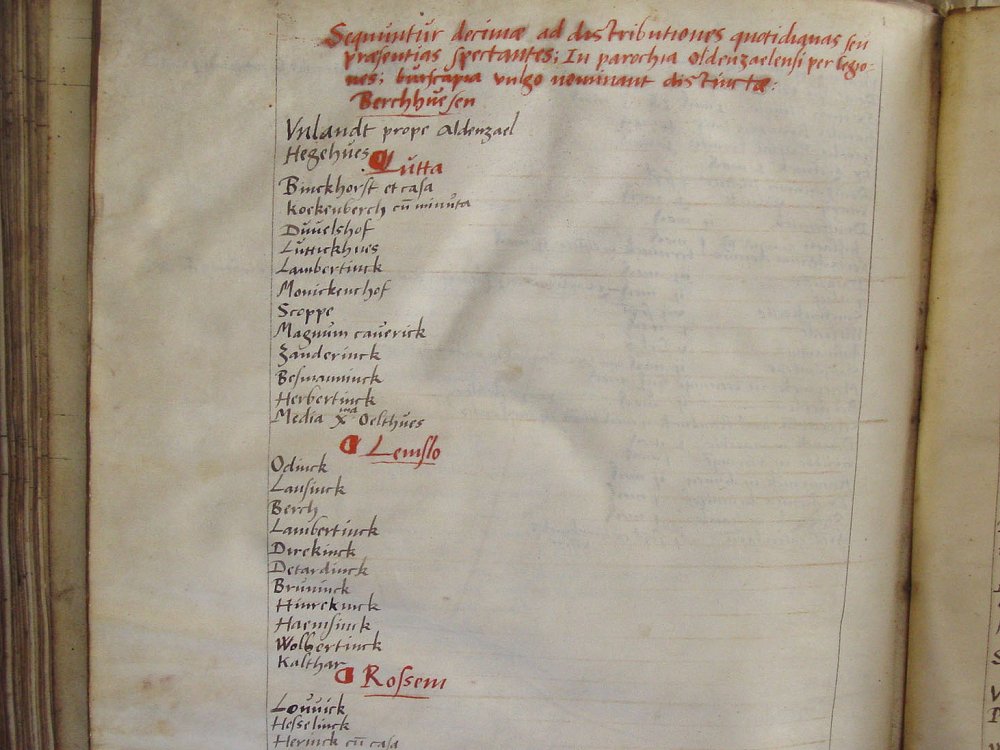 Sequuntur decimæ ad distributiones quotidianas seu
præsentias spectantes; In parochia Oldenzaelensi per legio-
nes; burscapia vulgo nominant distinctæ:
Berchhuesen
Vnlandt prope Aldenzael
Hegehues
Lutta
Binckhorst et casa
Koekenberch cū minuta
Duuelshof
Luttickhues
Lambertinck
Monickenhof
Scoppe
Magnum cauerick
Zanderinck
Besmanninck
Herbertinck
Media Xma Oelthues
Lemslo
Odinck
Lansinck
Berch
Lambertinck
Direkinck
Detardinck
Bruninck
Hinrekinck
Haemsinck
Wolbertinck
Kalthar
Rossem
Louuick
Hesselinck
Herinck cū casa